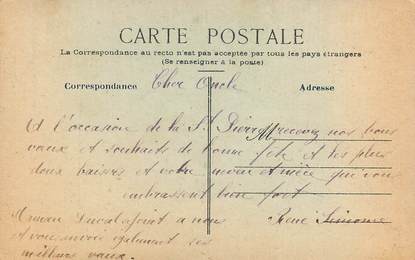 CARTE POSTALE
La Correspondance au recto n'est pas acceptée par tous les pays étrangers
(Se renseigner à la poste)
Correspondance
Adresse
Cher Oncle
A l'occasion de la St Pierre recevez nos bons
vœux et souhaits de bonne fête et les plus
doux baisers et votre neveu et nièce qui vous
embrassent bien fort
René Simonne
Maman a nous
et vous envoie également ses
meilleurs vœux.